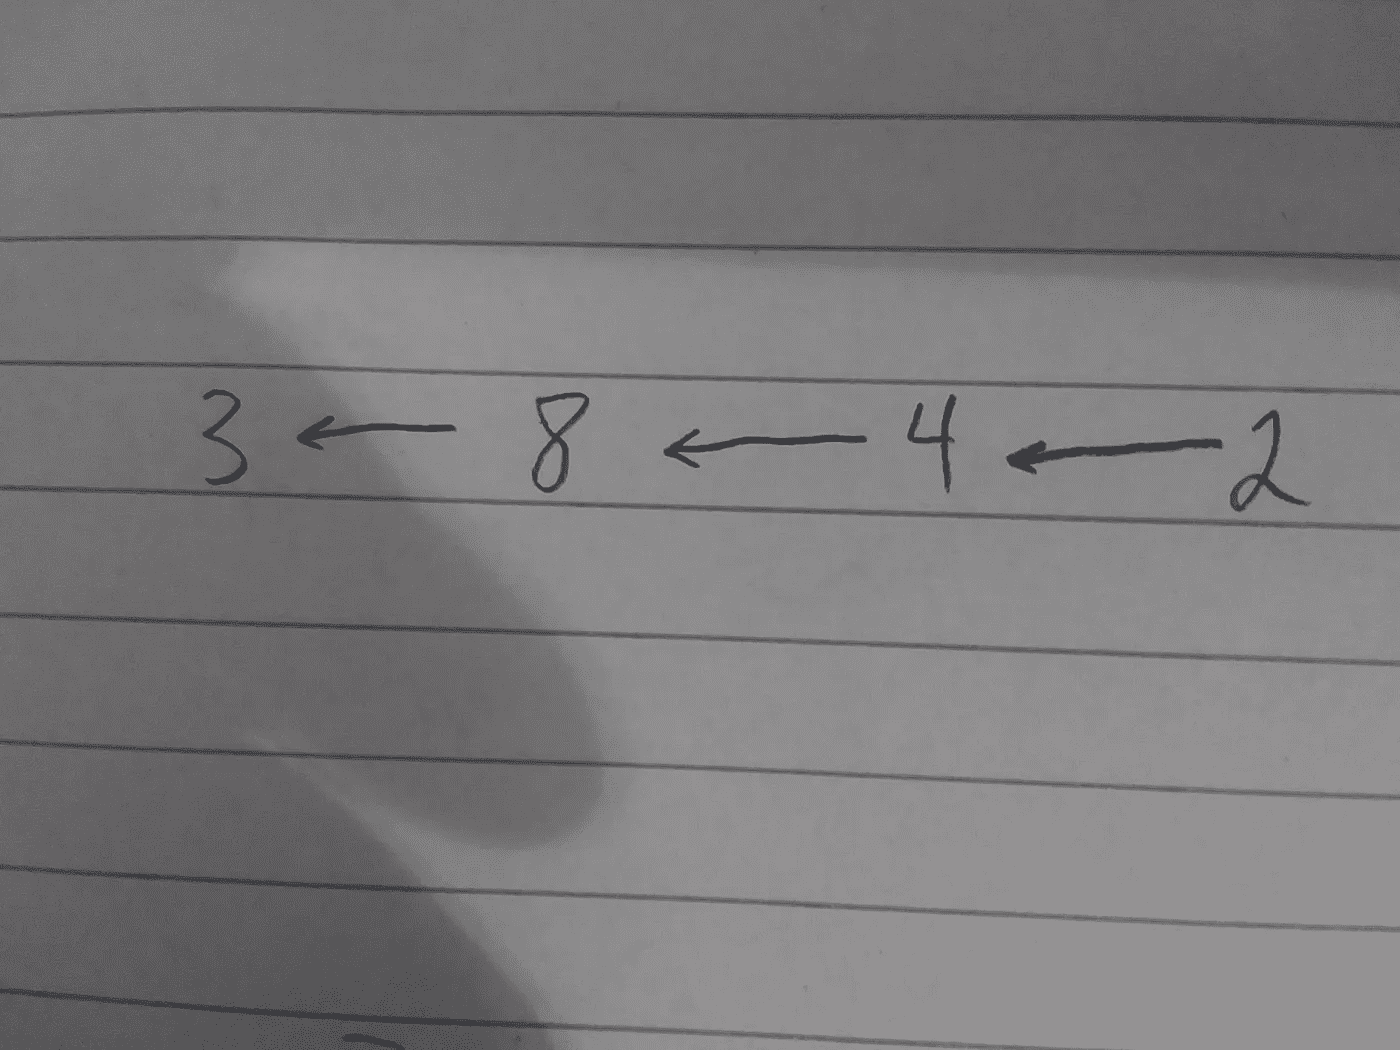 3 ← 8 ← 4 ← 2